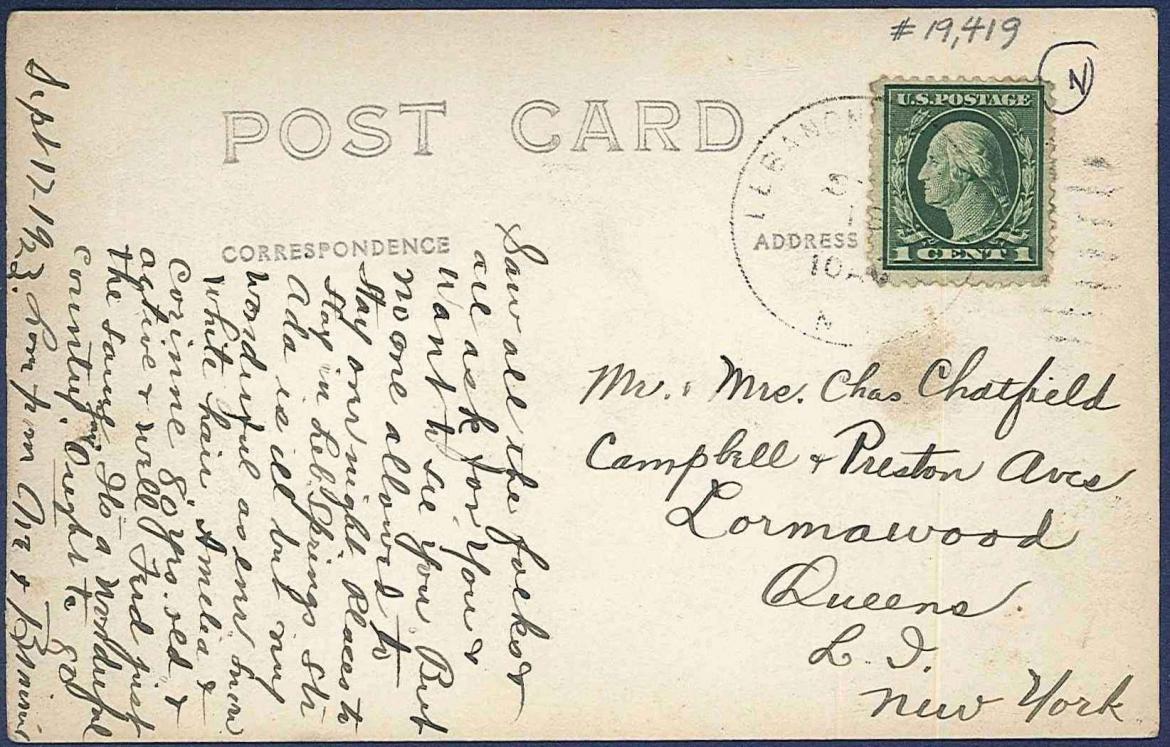 # 19,419
N
POST CARD
U.S. POSTAGE
1 CENT 1
LEBANON
10
N
CORRESPONDENCE
ADDRESS
Saw all the folks &
all ask for You &
Want to see You But
No one allowed to
Stay over night Places to
Stay in Leb Springs Str
Ada is ill but my
Wonderful as ever now
White hair Amelia &
Corinne 80 yrs. old &
active & well Fred just
the same. Its a Wonderful
Country. Ought to go
Sept 17-1923.
Mr. & Mrs. Chas Chatfield
Campbell & Preston Aves
Lormawood
Queens
L. I.
New York